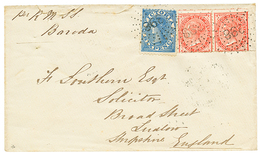 per R.M.S.S.
Baroda
F. Southern Esq
Solicitor
Broad Street
Ludlow
Shropshire England
VICTORIA